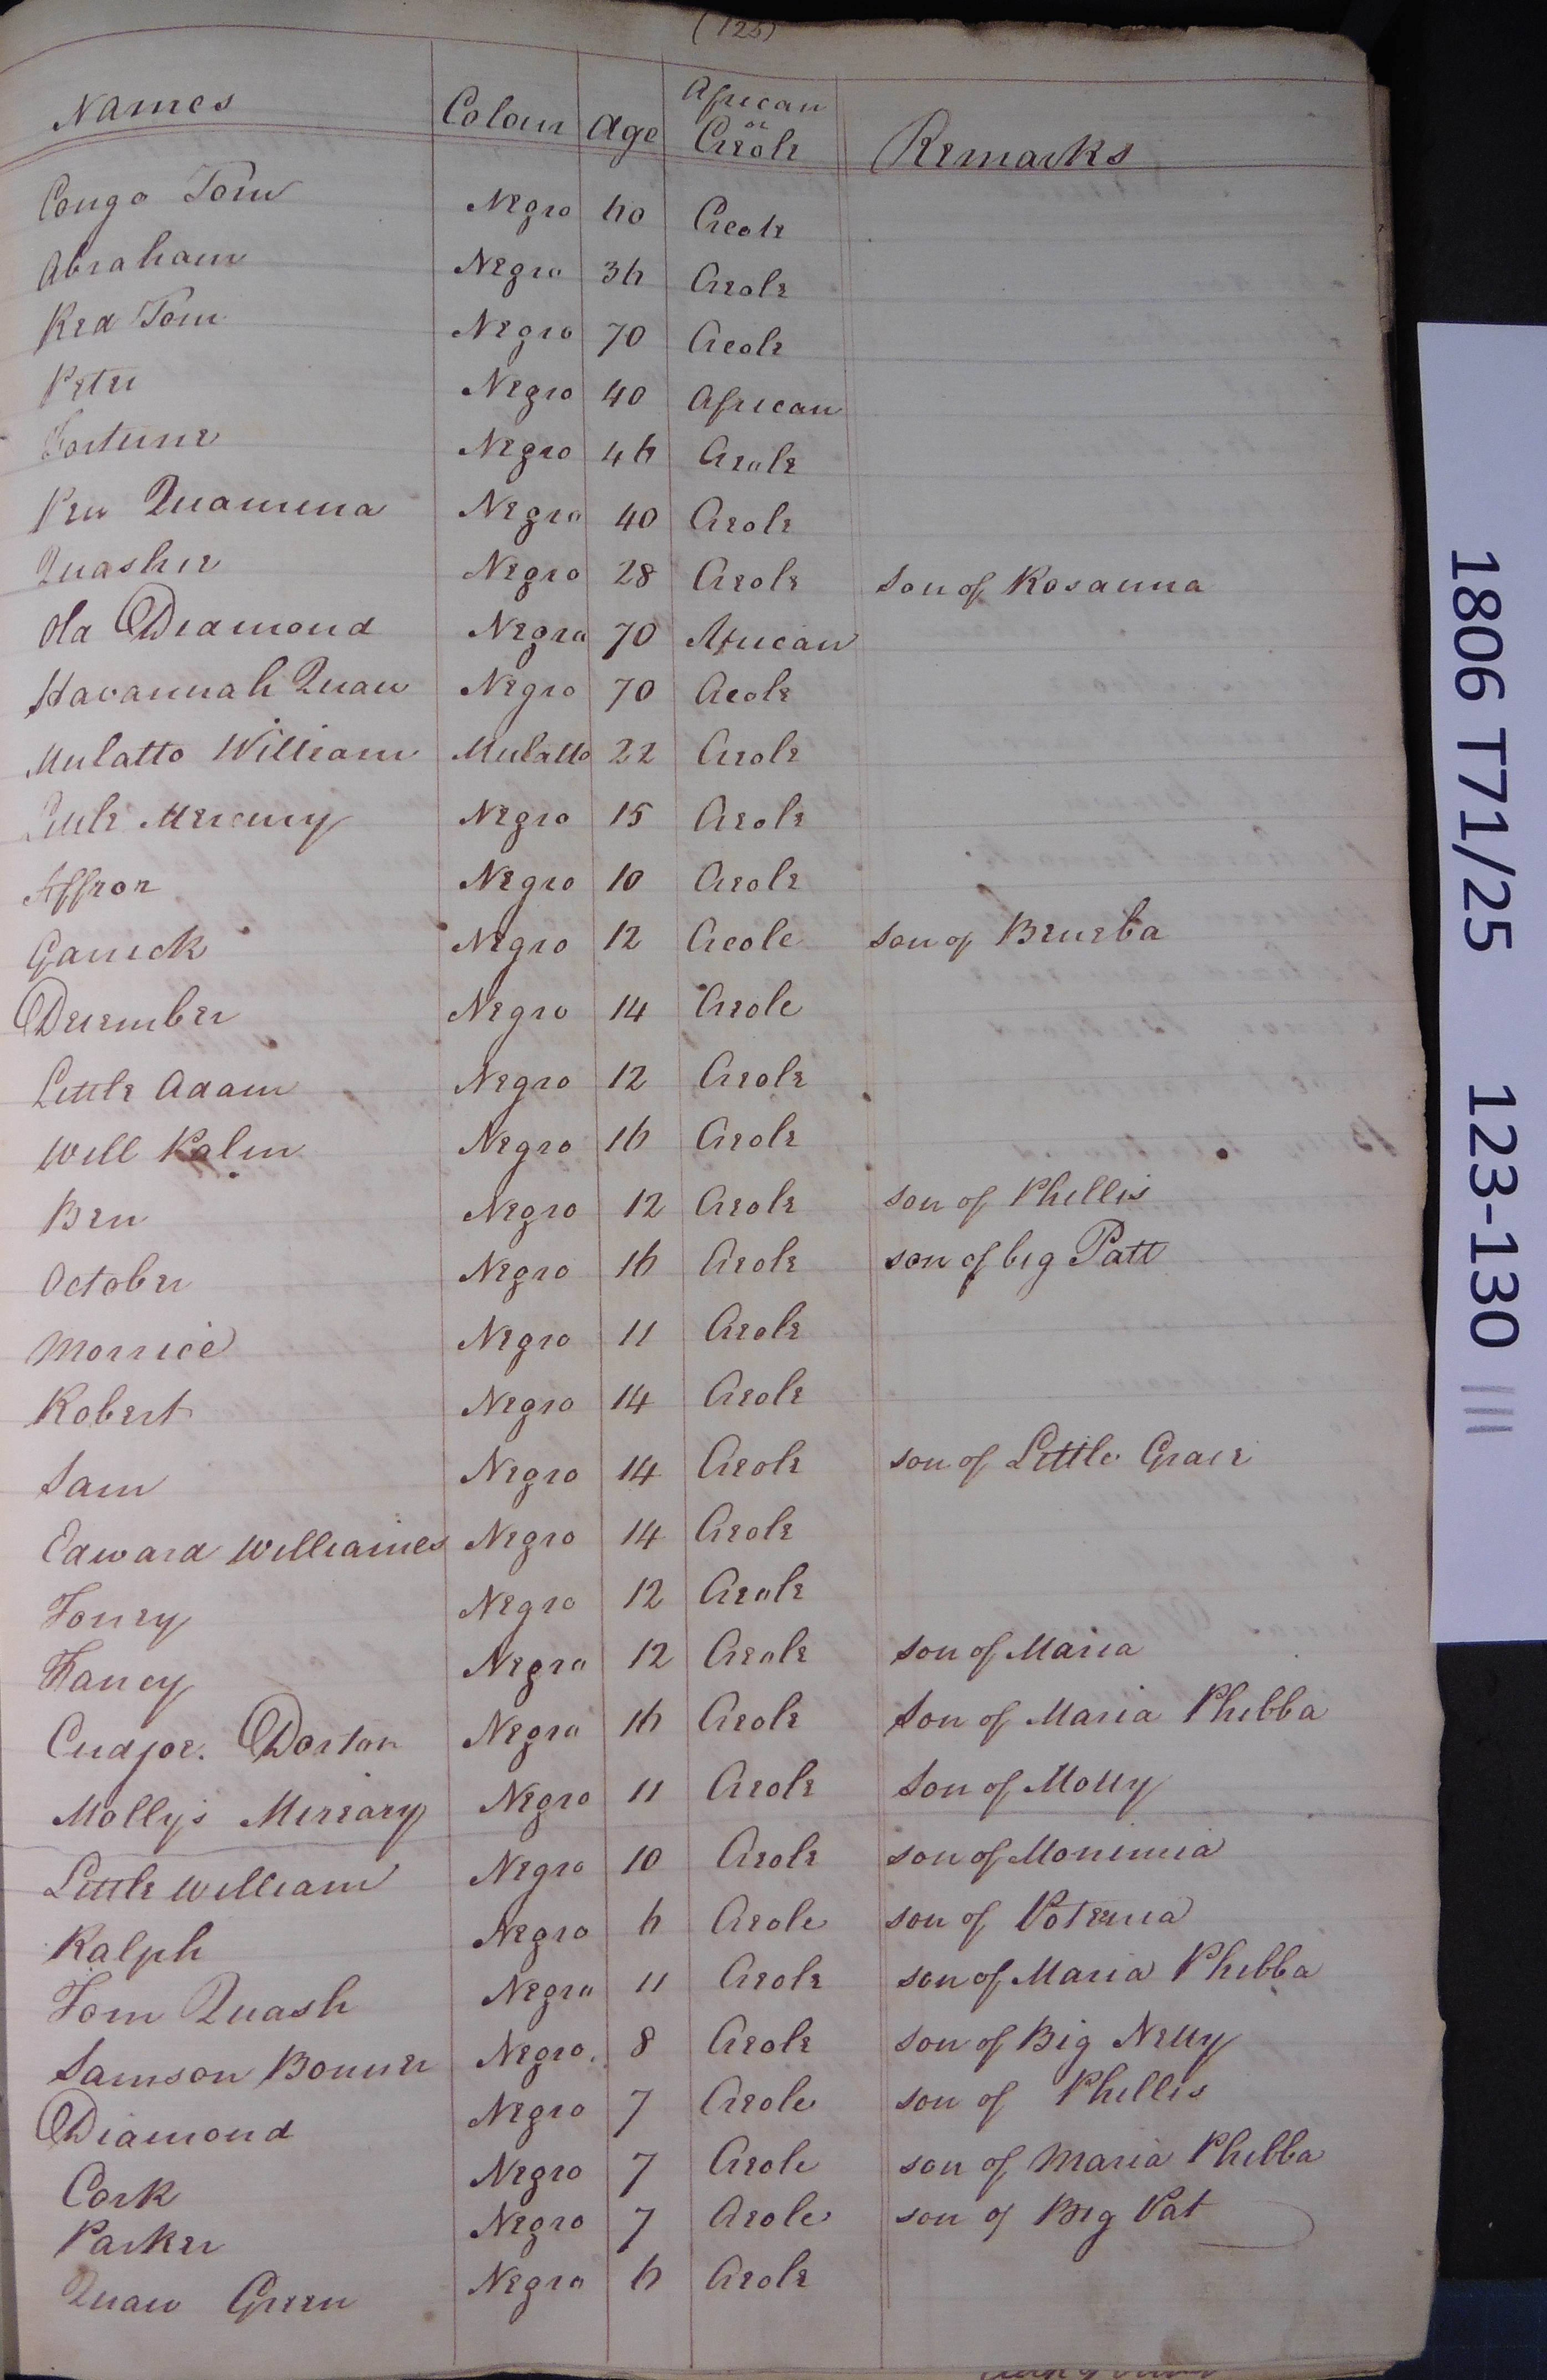 (125)
Names Colour Age African or Creole Remarks
Congo Tom Negro 60 Creole
Abraham Negro 36 Creole
Red Tom Negro 70 Creole
Peter Negro 40 African
Fortune Negro 46 Creole
Pen Quamina Negro 40 Creole
Quashie Negro 28 Creole Son of Rosanna
Old Diamond Negro 70 African
Havannah Quaw Negro 70 Creole
Mulatto William Mulatto 22 Creole
Little Mercury Negro 15 Creole
Affron Negro 10 Creole
Garrick Negro 12 Creole Son of Beneba
December Negro 14 Creole
Little Adam Negro 12 Creole
Will Palm Negro 16 Creole
Ben Negro 12 Creole son of Phillis
October Negro 16 Creole son of big Patt
Morrice Negro 11 Creole
Robert Negro 14 Creole
Sam Negro 14 Creole son of Little Grace
Edward Williames Negro 14 Creole
Toney Negro 12 Creole
Fancy Negro 12 Creole son of Maria
Cudjoe. Dorton Negro 16 Creole Son of Maria Phibba
Molly's Mercary Negro 11 Creole Son of Molly
Little William Negro 10 Creole son of Monimia
Ralph Negro 6 Creole son of Potenia
Tom Quash Negro 11 Creole son of Maria Phibba
Samson Bonner Negro 8 Creole son of Big Nelly
Diamond Negro 7 Creole son of Phillis
Cork Negro 7 Creole son of Maria Phibba
Parker Negro 7 Creole son of Big Pat
Quaw Green Negro 6 Creole
1806 T71/25 123-130